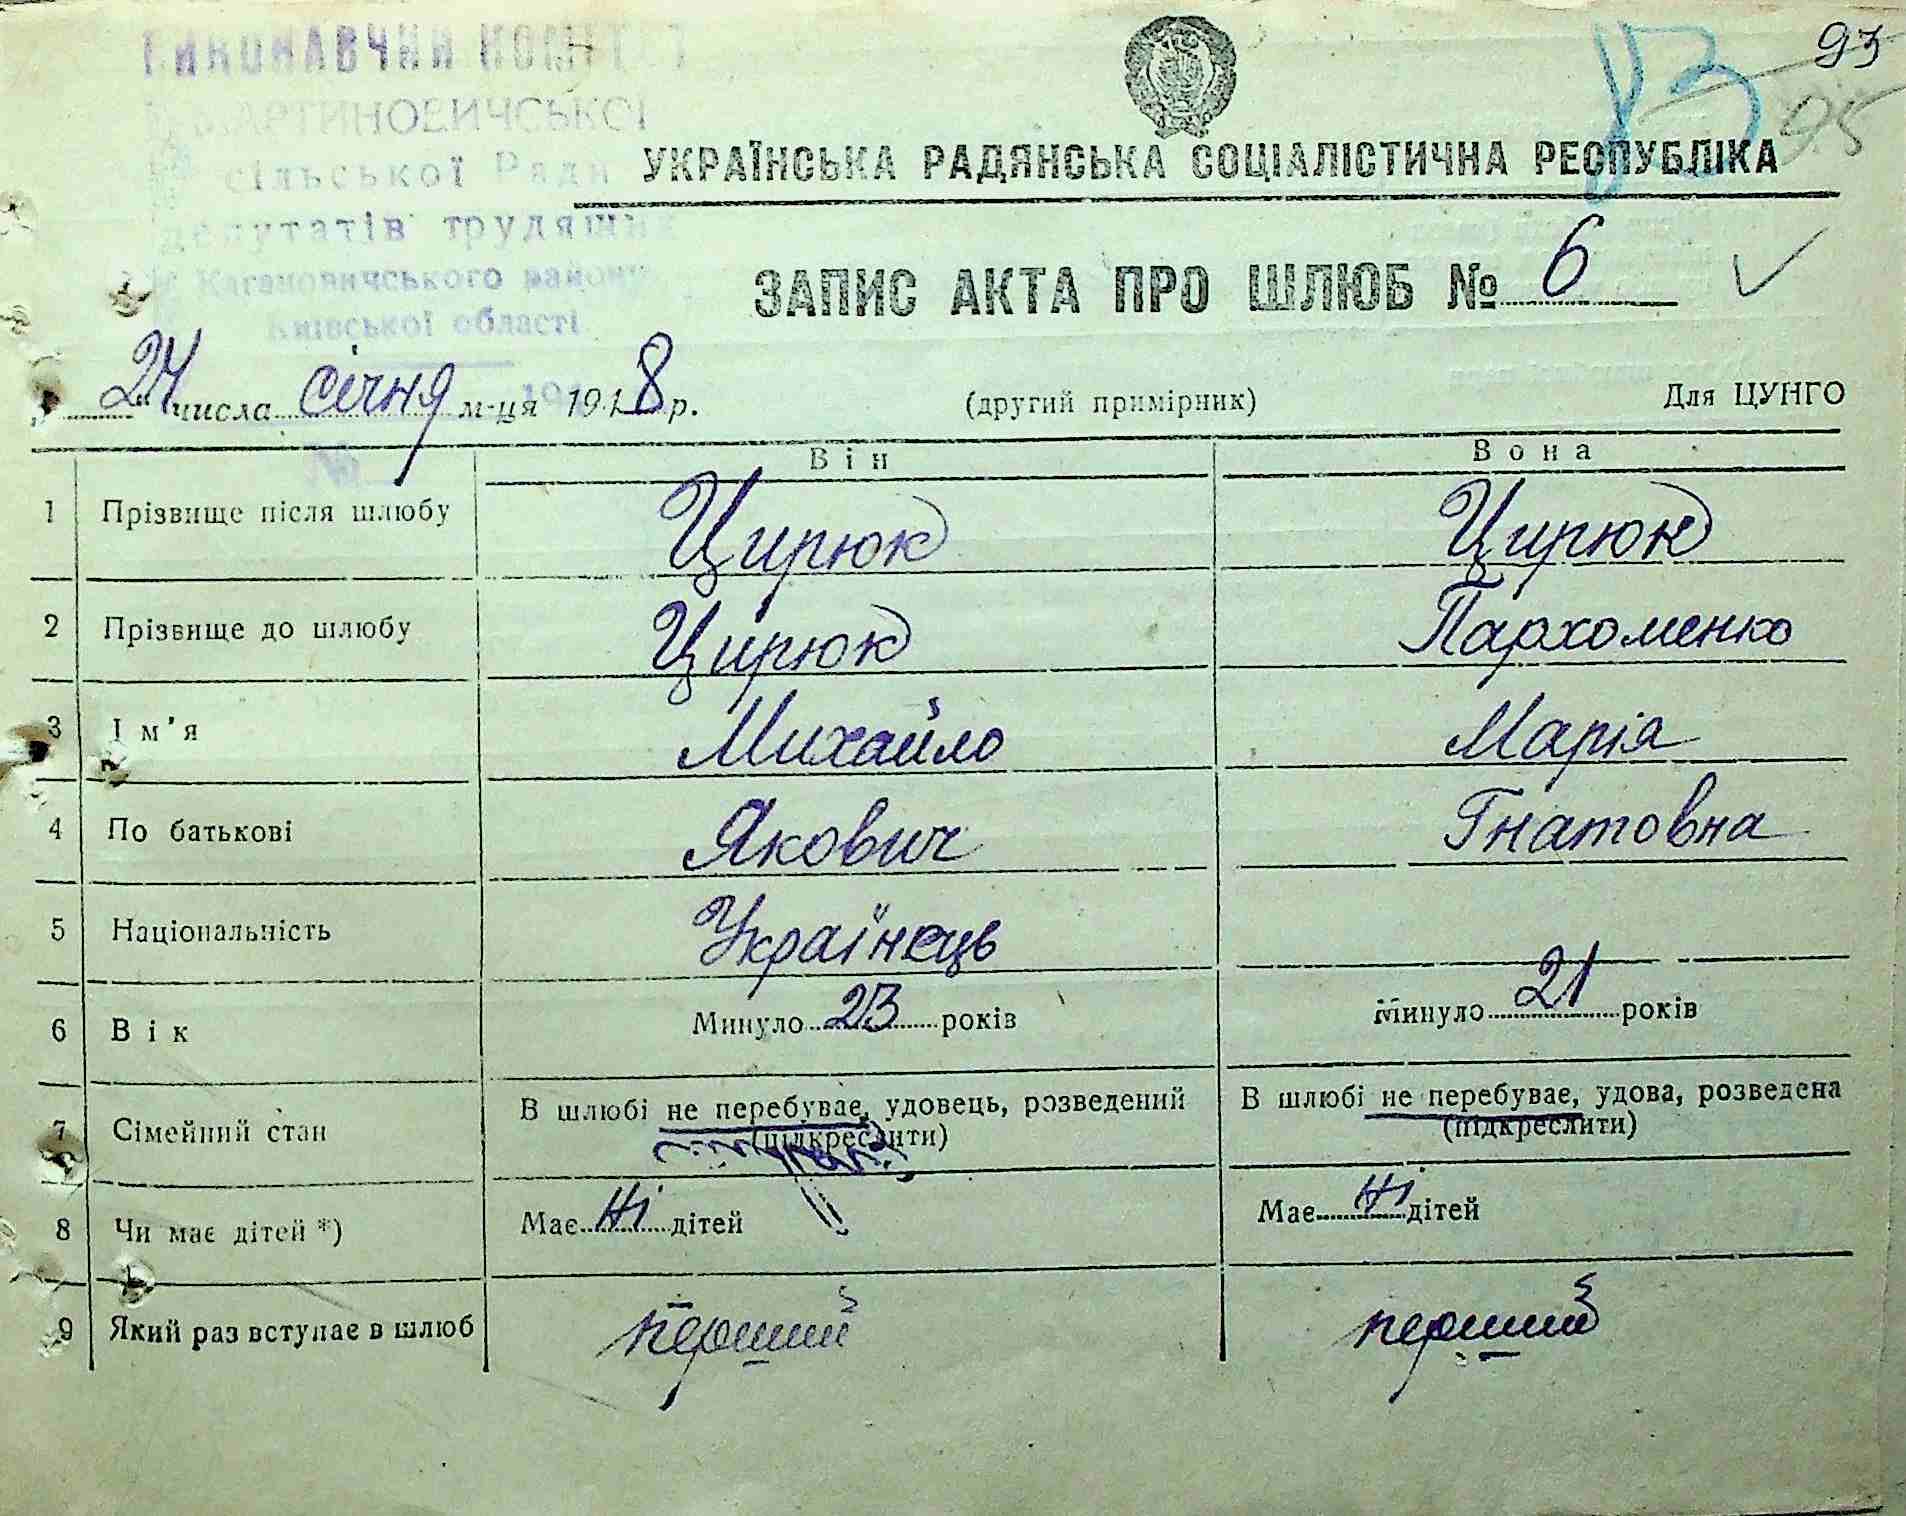 93
95
ВИКОНАВЧИЙ КОМІТЕТ
МАРТИНОВИЧСЬКОЇ
сільської Ради
депутатів трудящих
Кагановичського району
Київської області
№
УКРАЇНСЬКА РАДЯНСЬКА СОЦІАЛІСТИЧНА РЕСПУБЛІКА
ЗАПИС АКТА ПРО ШЛЮБ № 6
"24" числа січня м-ця 1948 р. (другий примірник) Для ЦУНГО
Він Вона
1 Прізвище після шлюбу Цирюк Цирюк
2 Прізвище до шлюбу Цирюк Пархоменко
3 Ім'я Михайло Марія
4 По батькові Якович Гнатовна
5 Національність Українець
6 Вік Минуло 23 років Минуло 21 років
7 Сімейний стан В шлюбі не перебуває, удовець, розведений В шлюбі не перебуває, удова, розведена
(підкреслити) (підкреслити)
8 Чи має дітей *) Має ні дітей Має ні дітей
9 Який раз вступає в шлюб перший перший